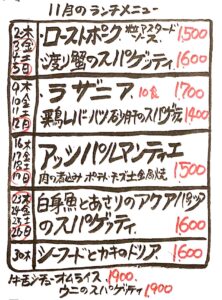 11月のランチメニュー
2木 ・ローストポーク 粒マスタードソース 1500
3金
4土 ・渡り蟹のスパゲッティ 1600
5日
9木 ・ラザニア 10食 1700
10金
11土 ・鶏レバーハツ 砂肝のスパゲッティ 1400
12日
16木 アッシパルマンティエ 1500
17金
18土 肉の煮込み ポテト チーズ
19日
23木 ・白身魚とあさりのアクアパッツァ
24金
25土 のスパゲッティ 1600
26日
30木 ・シーフードとカキのドリア 1600
牛舌シチューオムライス 1900
ウニのスパゲティ 1900